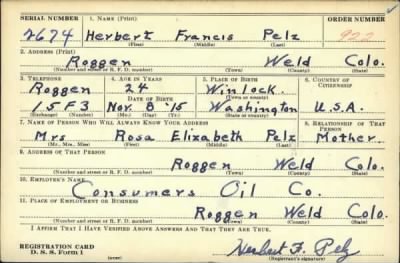 SERIAL NUMBER 1. NAME (Print) ORDER NUMBER
2674 Herbert Francis Pelz 922
(First) (Middle) (Last)
2. ADDRESS (Print)
Roggen Weld Colo.
(Number and street or R. F. D. number) (Town) (County) (State)
3. TELEPHONE 4. AGE IN YEARS 5. PLACE OF BIRTH 6. COUNTRY OF CITIZENSHIP
Roggen 24 Winlock
DATE OF BIRTH (Town or county)
15F3 Nov. 8 '15 Washington U.S.A.
(Exchange) (Number) (Mo.) (Day) (Yr.) (State or country)
7. NAME OF PERSON WHO WILL ALWAYS KNOW YOUR ADDRESS 8. RELATIONSHIP OF THAT PERSON
Mrs Rosa Elizabeth Pelz Mother
(Mr., Mrs., Miss) (First) (Middle) (Last)
9. ADDRESS OF THAT PERSON
Roggen Weld Colo.
(Number and street or R. F. D. number) (Town) (County) (State)
10. EMPLOYER'S NAME
Consumers Oil Co.
11. PLACE OF EMPLOYMENT OR BUSINESS
Roggen Weld Colo.
(Number and street or R. F. D. number) (Town) (County) (State)
I AFFIRM THAT I HAVE VERIFIED ABOVE ANSWERS AND THAT THEY ARE TRUE.
REGISTRATION CARD
D. S. S. Form 1 (over) Herbert F. Pelz
(Registrant's signature)